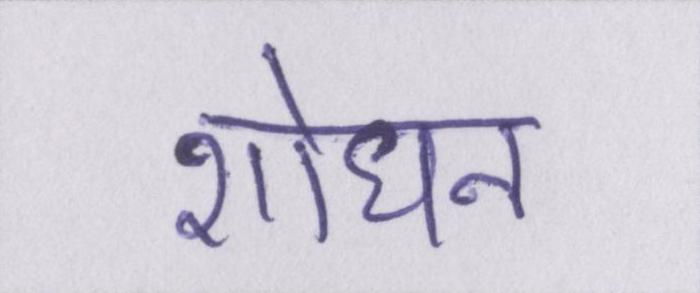 शोधन